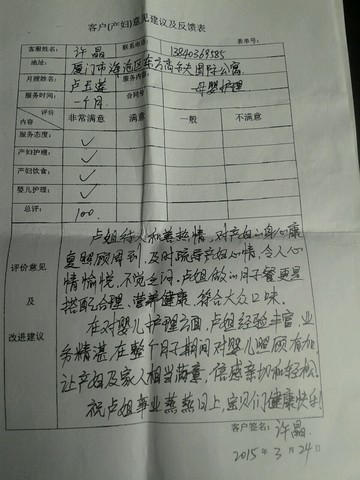 客户(产妇)意见建议及反馈表
表单号:
客服姓名: 许晶 联系电话: 13840369585
地址: 厦门市海沧区东方高尔夫国际公寓
月嫂姓名: 卢玉莲 服务内容: 母婴护理
服务时间: 一个月 合同号
评价 内容 非常满意 满意 一般 不满意
服务态度: ✓
产妇护理: ✓
产妇饮食: ✓
婴儿护理: ✓
总评: 100
评价意见
及
改进建议
卢姐待人和善热情,对产妇的身心康
复照顾周到,及时疏导产妇心情,令人心
情愉悦,不觉之间。卢姐做的月子餐更是
搭配合理,营养健康,符合大众口味。
在对婴儿护理方面,卢姐经验丰富,业
务精湛,在整个月子期间对婴儿照顾有加
让产妇及家人相当满意,倍感亲切和轻松。
祝卢姐事业蒸蒸日上,宝贝们健康快乐
客户签名: 许晶
2015年3月24日